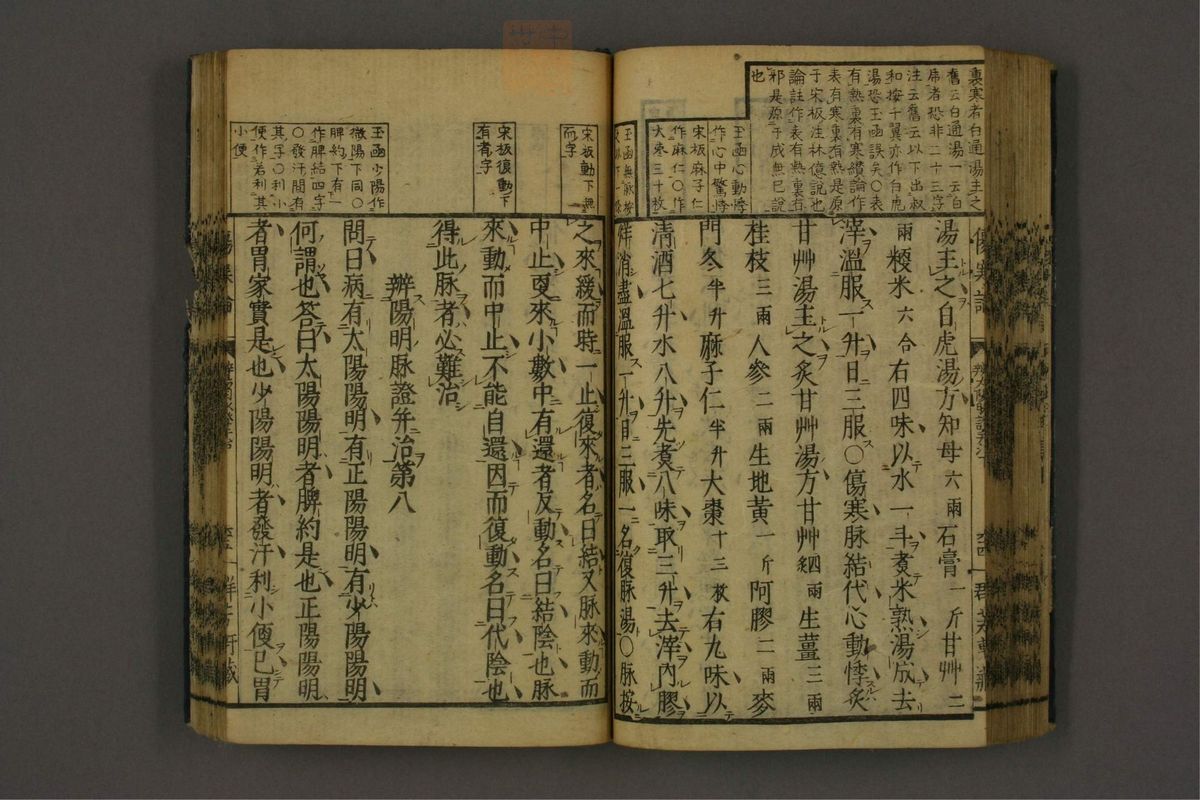 裏寒者白通湯主之
舊云白通湯一云白
席者恐非二十三字
注云舊云以下出叔
和按千翼亦作白虎
湯恐玉函誤矣〇表
有熱裏有寒纘論作
表有寒裏有熱是原
于宋板注林億說也
論註作表有熱裏有
邪是原于成無已說
也
玉函心動悸
作心中驚悸
宋板麻子仁
作麻仁〇作
大棗三十枚
傷寒論
湯主之白虎湯方知母六兩石膏一斤甘艸二
兩粳米六合右四味以水一斗煮米熟湯成去
滓溫服一升日三服〇傷寒脉結代心動悸炙
甘艸湯主之炙甘艸湯方甘艸四兩炙生薑三兩
桂枝三兩人參二兩生地黃一斤阿膠二兩麥
門冬半升麻子仁半升大棗十三枚右九味以
清酒七升水八升先煮八味取三升去滓內膠
烊消盡溫服一升日三服一名復脉湯〇脉按
宋板動下無
而字
宋板復動下
有者字
玉函少陽作
微陽下同〇
脾約下有一
作脾結四字
〇發汗間有
其字〇利小
便作若利其
小便
之來緩而時一止復來者名曰結又脉來動而
中止更來小數中有還者反動名曰結陰也脉
來動而中止不能自還因而復動名曰代陰也
得此脉者必難治
辨陽明脉證并治第八
問曰病有太陽陽明有正陽陽明有少陽陽明
何謂也答曰太陽陽明者脾約是也正陽陽明
者胃家實是也少陽陽明者發汗利小便已胃